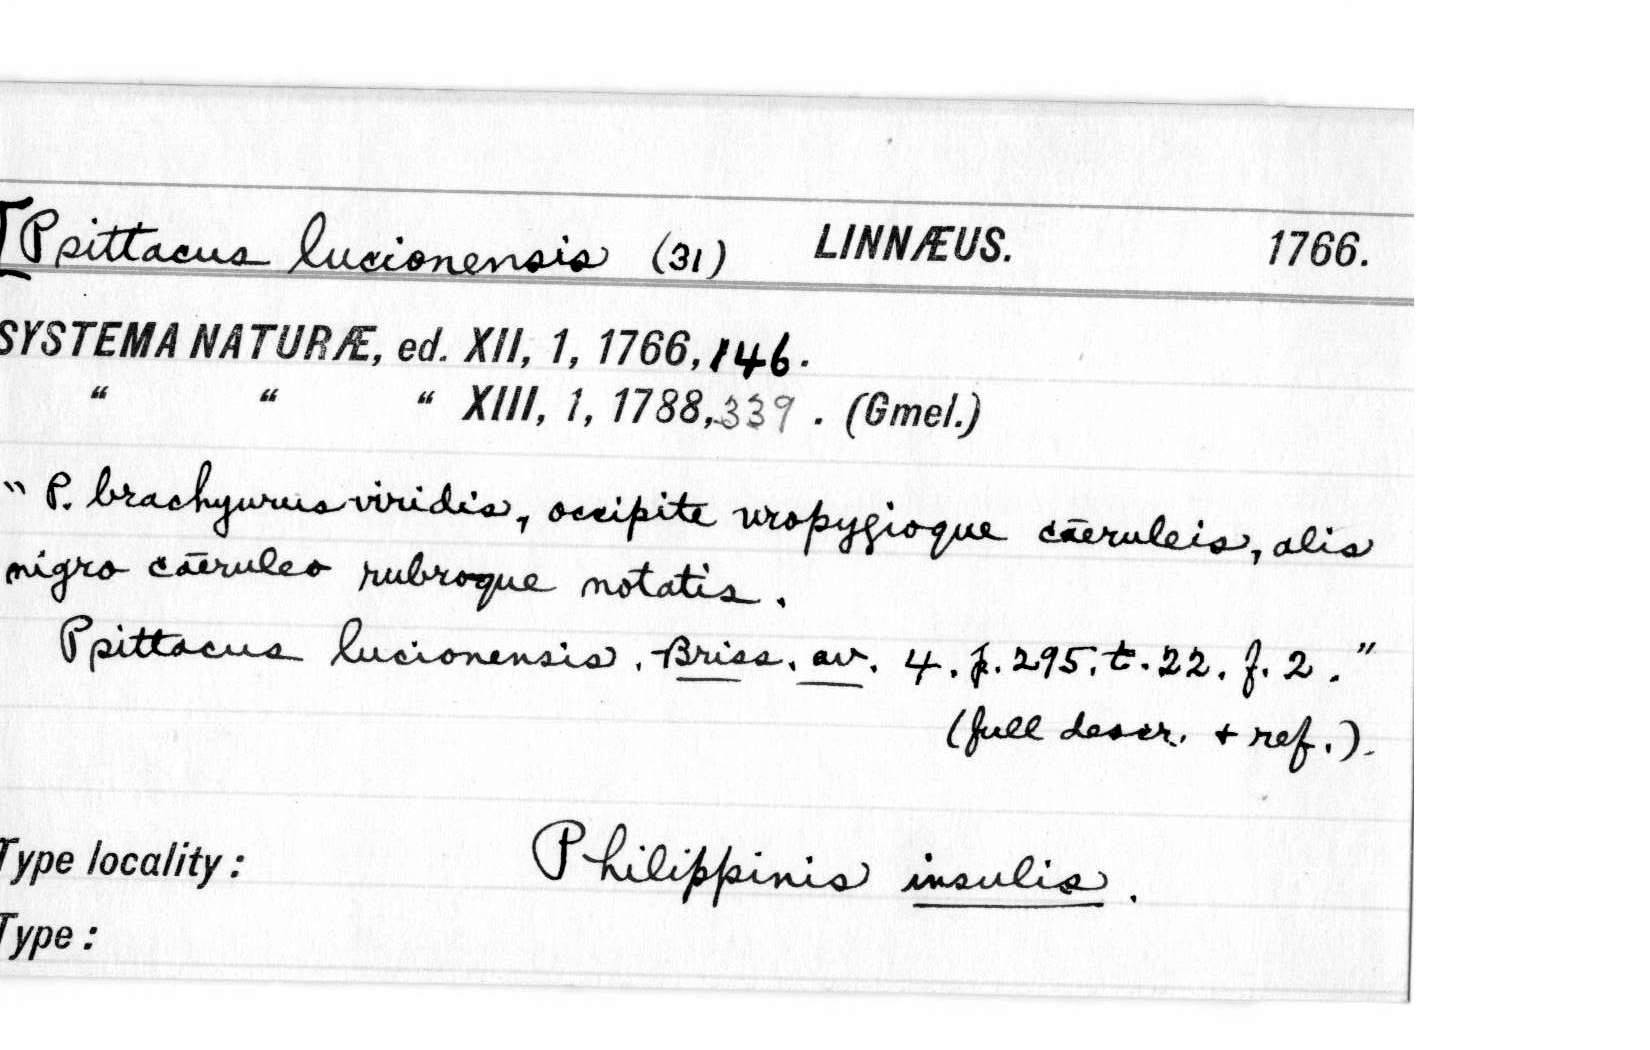 [Psittacus lucionensis (31) LINNÆUS. 1766.
SYSTEMA NATURÆ, ed. XII, 1, 1766, 146.
“ “ “ XIII, 1, 1788, 339. (Gmel.)
" P. brachyurus viridis, occipite uropygioque cæruleis, alis
nigro cæruleo rubroque notatis.
Psittacus lucionensis. Briss. av. 4. p. 295. t. 22. f. 2."
(full descr. + ref.).
Type locality: Philippinis insulis.
Type: